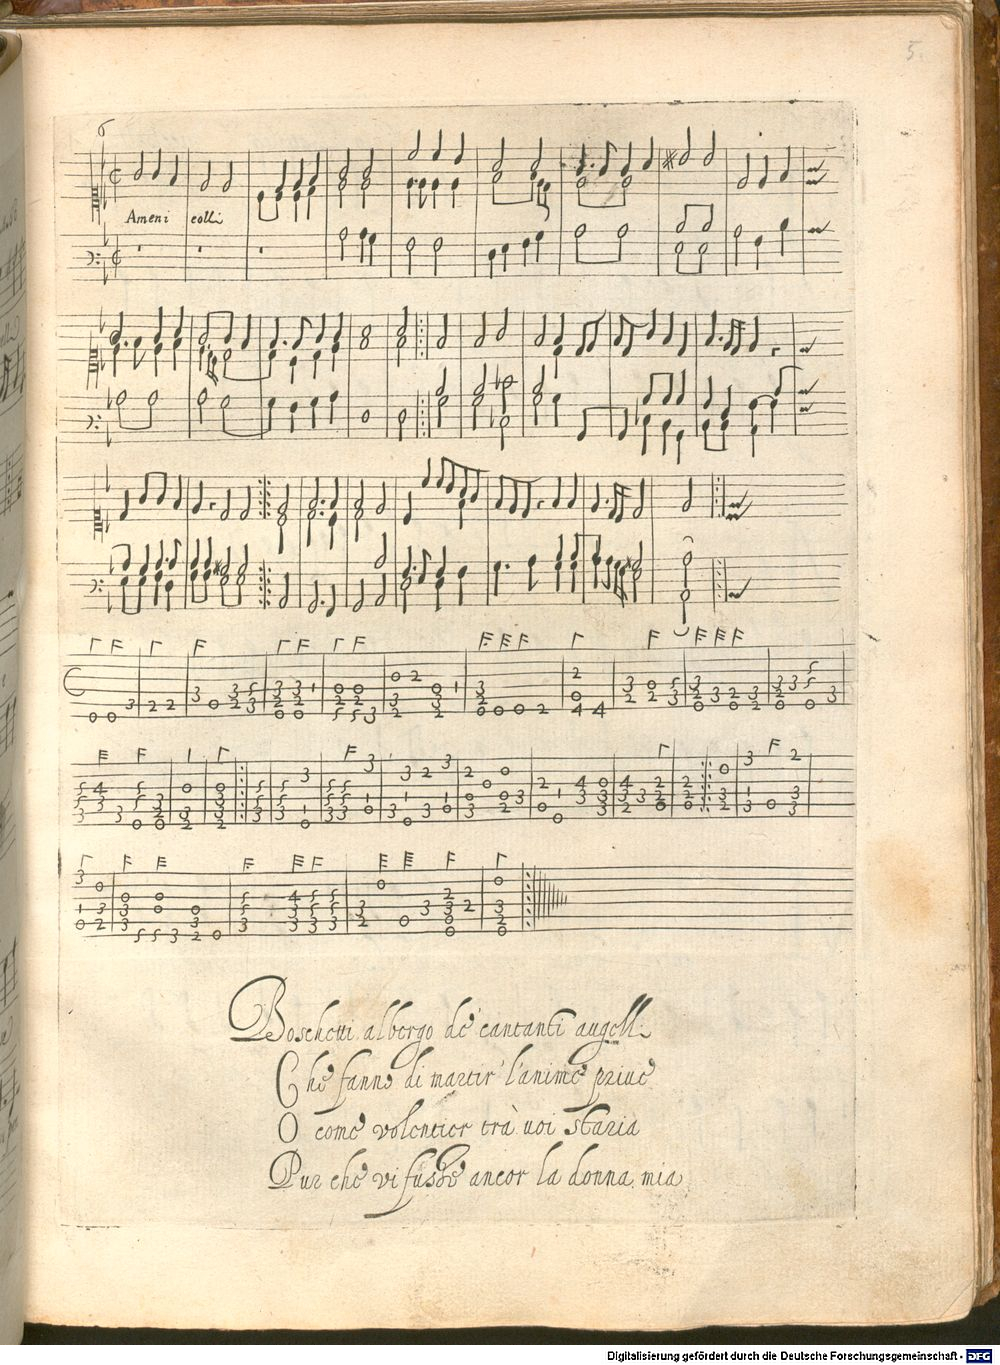 5.
6
Ameni colli
Boschetti albergo de cantanti augelli
Che fanno di martir l'anime priue
O come volentier trà uoi staria
Pur che vi fusse ancor la donna mia
Digitalisierung gefördert durch die Deutsche Forschungsgemeinschaft - DFG